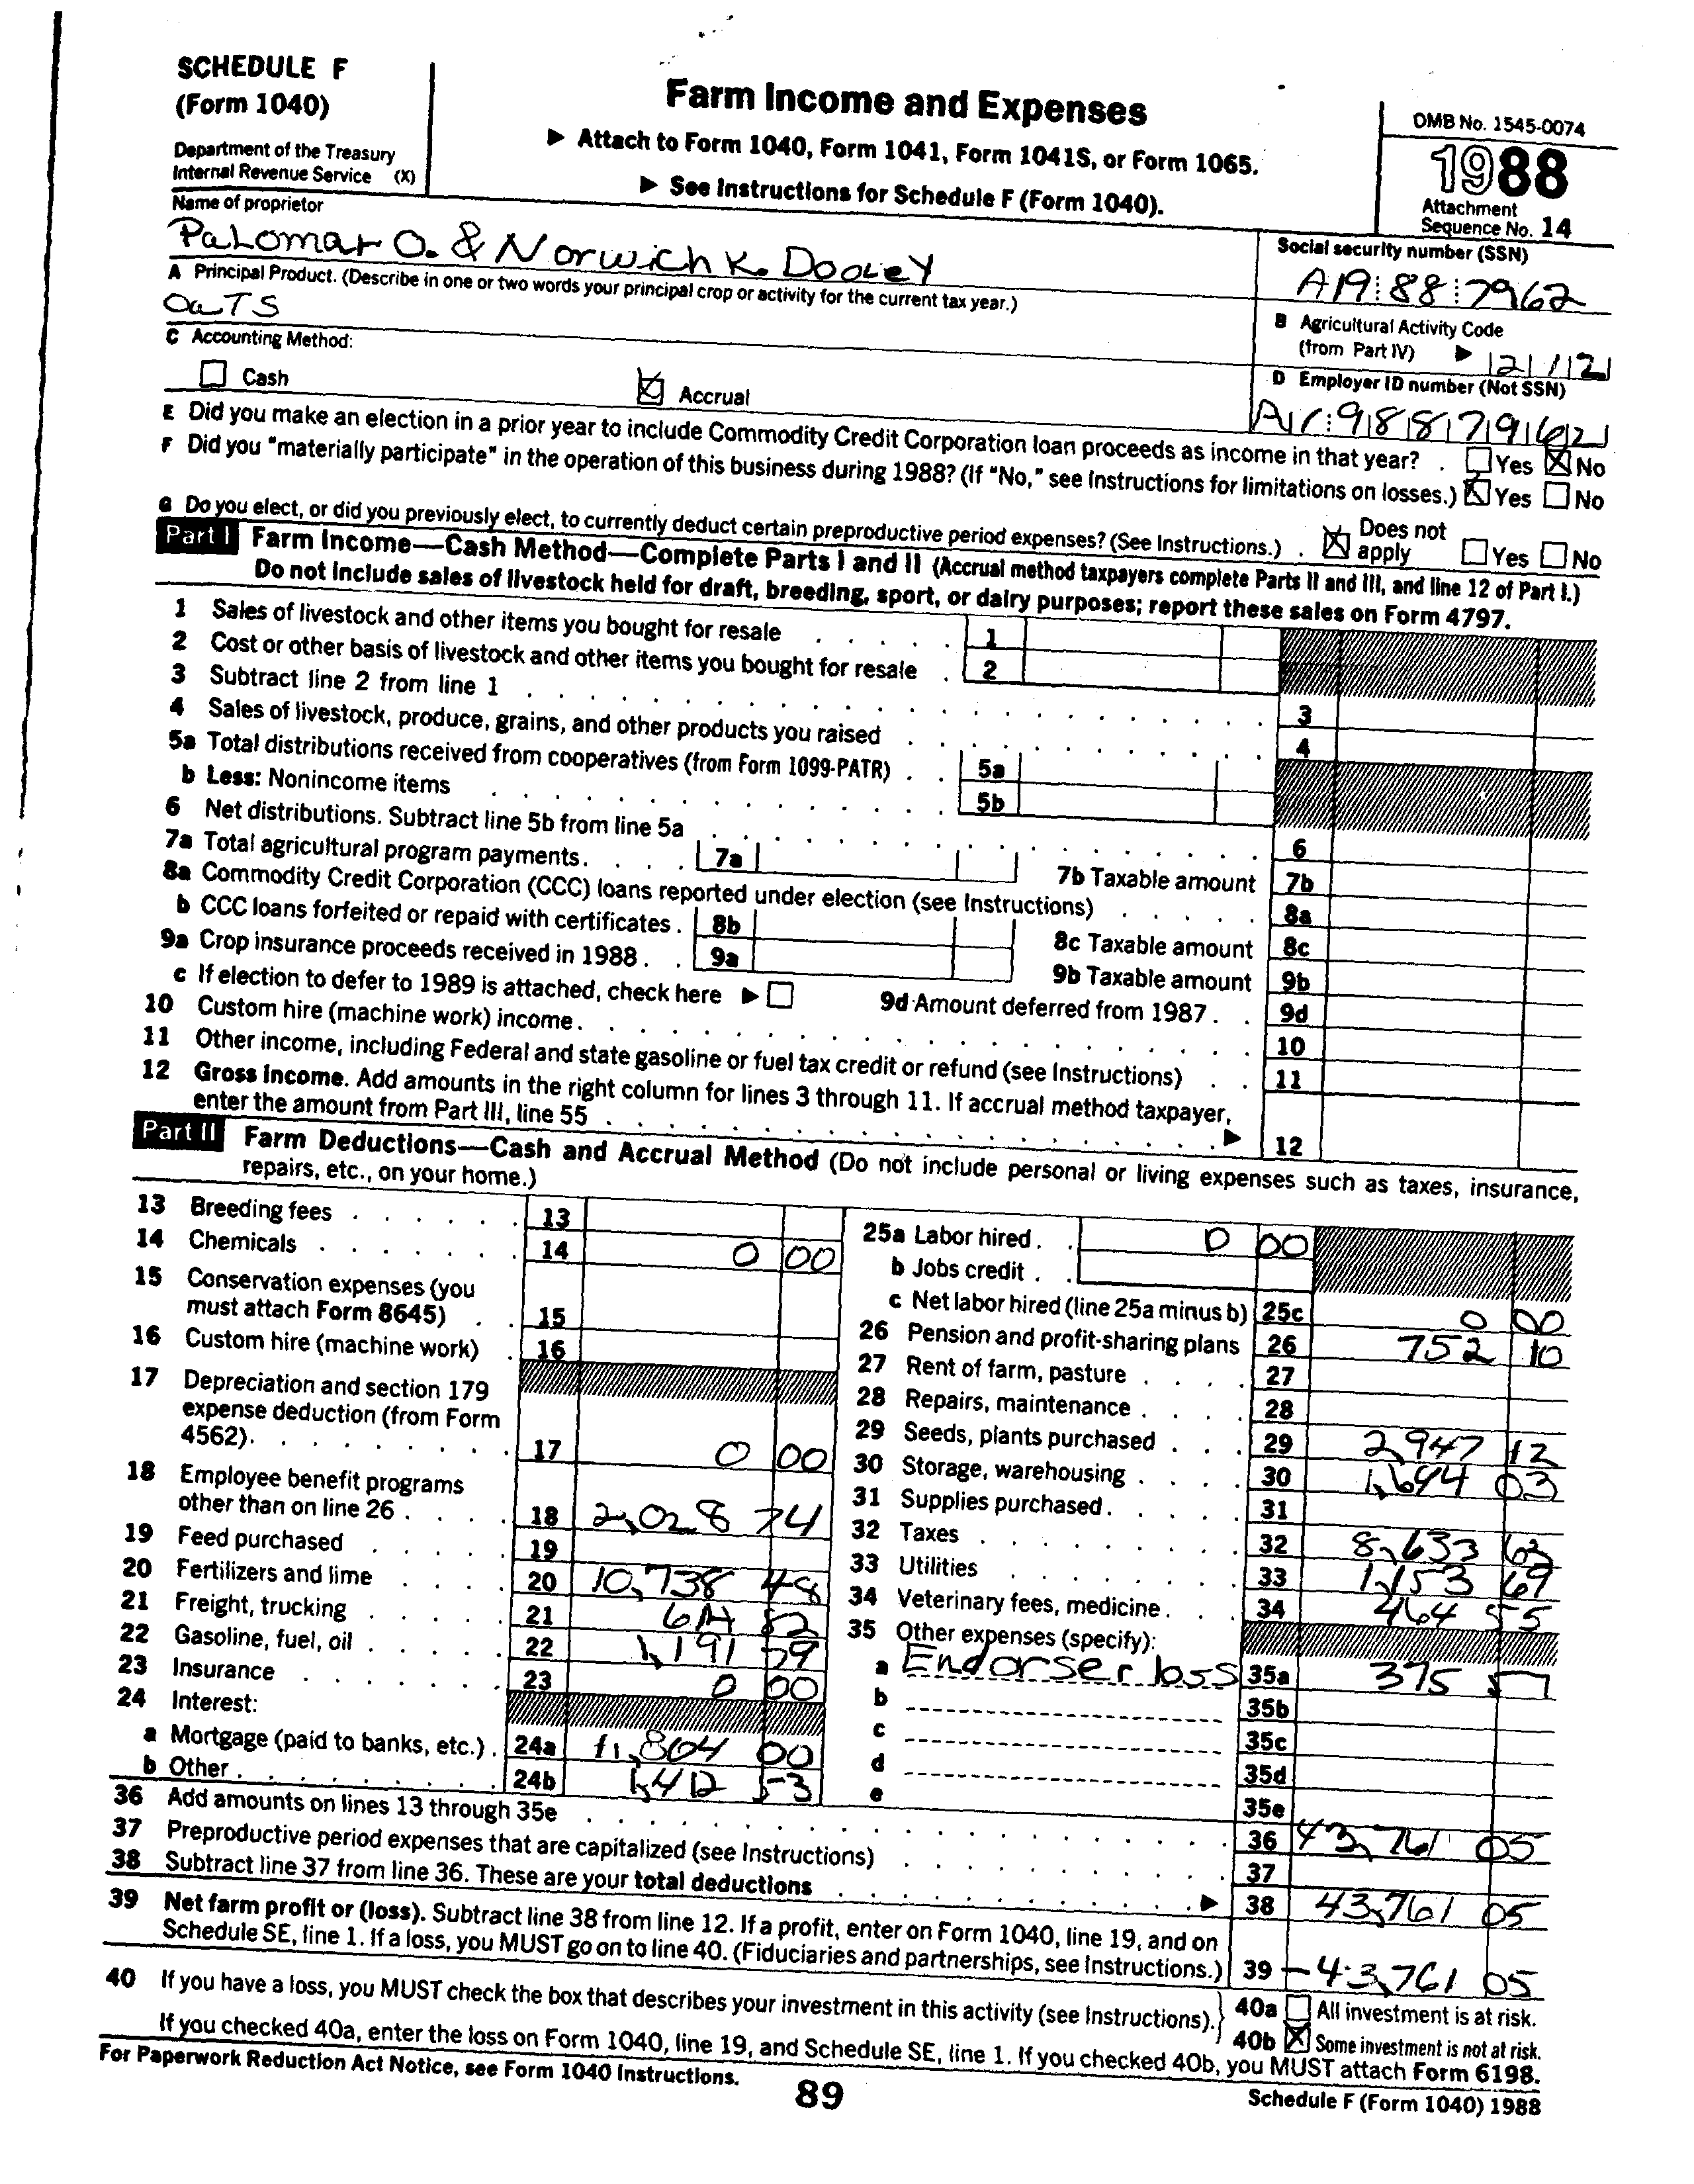 SCHEDULE F
(Form 1040)
Department of the Treasury
Internal Revenue Service (X)
Farm Income and Expenses
▶ Attach to Form 1040, Form 1041, Form 1041S, or Form 1065.
▶ See Instructions for Schedule F (Form 1040).
OMB No. 1545-0074
1988
Attachment
Sequence No. 14
Name of proprietor
PaLomar O. & Norwich K. DooLeY
Social security number (SSN)
A19 88 7962
A Principal Product. (Describe in one or two words your principal crop or activity for the current tax year.)
OaTS
B Agricultural Activity Code
(from Part IV) ▶ 2 1 1 2
C Accounting Method:
Cash Accrual
D Employer ID number (Not SSN)
A 1 9 8 8 7 9 6 2
E Did you make an election in a prior year to include Commodity Credit Corporation loan proceeds as income in that year? . Yes No
F Did you "materially participate" in the operation of this business during 1988? (If "No," see Instructions for limitations on losses.) Yes No
G Do you elect, or did you previously elect, to currently deduct certain preproductive period expenses? (See Instructions.) . Does not apply Yes No
Part I Farm Income—Cash Method—Complete Parts I and II (Accrual method taxpayers complete Parts II and III, and line 12 of Part I.)
Do not include sales of livestock held for draft, breeding, sport, or dairy purposes; report these sales on Form 4797.
1 Sales of livestock and other items you bought for resale 1
2 Cost or other basis of livestock and other items you bought for resale 2
3 Subtract line 2 from line 1 3
4 Sales of livestock, produce, grains, and other products you raised 4
5a Total distributions received from cooperatives (from Form 1099-PATR) 5a
b Less: Nonincome items 5b
6 Net distributions. Subtract line 5b from line 5a 6
7a Total agricultural program payments. 7a 7b Taxable amount 7b
8a Commodity Credit Corporation (CCC) loans reported under election (see Instructions) 8a
b CCC loans forfeited or repaid with certificates . 8b 8c Taxable amount 8c
9a Crop insurance proceeds received in 1988 . 9a 9b Taxable amount 9b
c If election to defer to 1989 is attached, check here ▶ 9d Amount deferred from 1987 . 9d
10 Custom hire (machine work) income. 10
11 Other income, including Federal and state gasoline or fuel tax credit or refund (see Instructions) 11
12 Gross Income. Add amounts in the right column for lines 3 through 11. If accrual method taxpayer,
enter the amount from Part III, line 55 ▶ 12
Part II Farm Deductions—Cash and Accrual Method (Do not include personal or living expenses such as taxes, insurance,
repairs, etc., on your home.)
13 Breeding fees 13
14 Chemicals 14 0 00
15 Conservation expenses (you
must attach Form 8645) 15
16 Custom hire (machine work) 16
17 Depreciation and section 179
expense deduction (from Form
4562). 17 0 00
18 Employee benefit programs
other than on line 26 18 2,028 74
19 Feed purchased 19
20 Fertilizers and lime 20 10,738 48
21 Freight, trucking 21 614 82
22 Gasoline, fuel, oil 22 1,191 79
23 Insurance 23 0 00
24 Interest:
a Mortgage (paid to banks, etc.) . 24a 11,804 00
b Other 24b 1,412 53
25a Labor hired . 0 00
b Jobs credit .
c Net labor hired (line 25a minus b) 25c 0 00
26 Pension and profit-sharing plans 26 752 10
27 Rent of farm, pasture 27
28 Repairs, maintenance 28
29 Seeds, plants purchased 29 2,947 12
30 Storage, warehousing 30 1,644 03
31 Supplies purchased. 31
32 Taxes 32 8,633 63
33 Utilities 33 1,153 69
34 Veterinary fees, medicine. 34 464 55
35 Other expenses (specify):
a Endorser loss 35a 375 57
b 35b
c 35c
d 35d
e 35e
36 Add amounts on lines 13 through 35e 36 43,761 05
37 Preproductive period expenses that are capitalized (see Instructions) 37
38 Subtract line 37 from line 36. These are your total deductions ▶ 38 43,761 05
39 Net farm profit or (loss). Subtract line 38 from line 12. If a profit, enter on Form 1040, line 19, and on
Schedule SE, line 1. If a loss, you MUST go on to line 40. (Fiduciaries and partnerships, see Instructions.) 39 -43,761 05
40 If you have a loss, you MUST check the box that describes your investment in this activity (see Instructions). 40a All investment is at risk.
40b Some investment is not at risk.
If you checked 40a, enter the loss on Form 1040, line 19, and Schedule SE, line 1. If you checked 40b, you MUST attach Form 6198.
For Paperwork Reduction Act Notice, see Form 1040 Instructions.
89
Schedule F (Form 1040) 1988